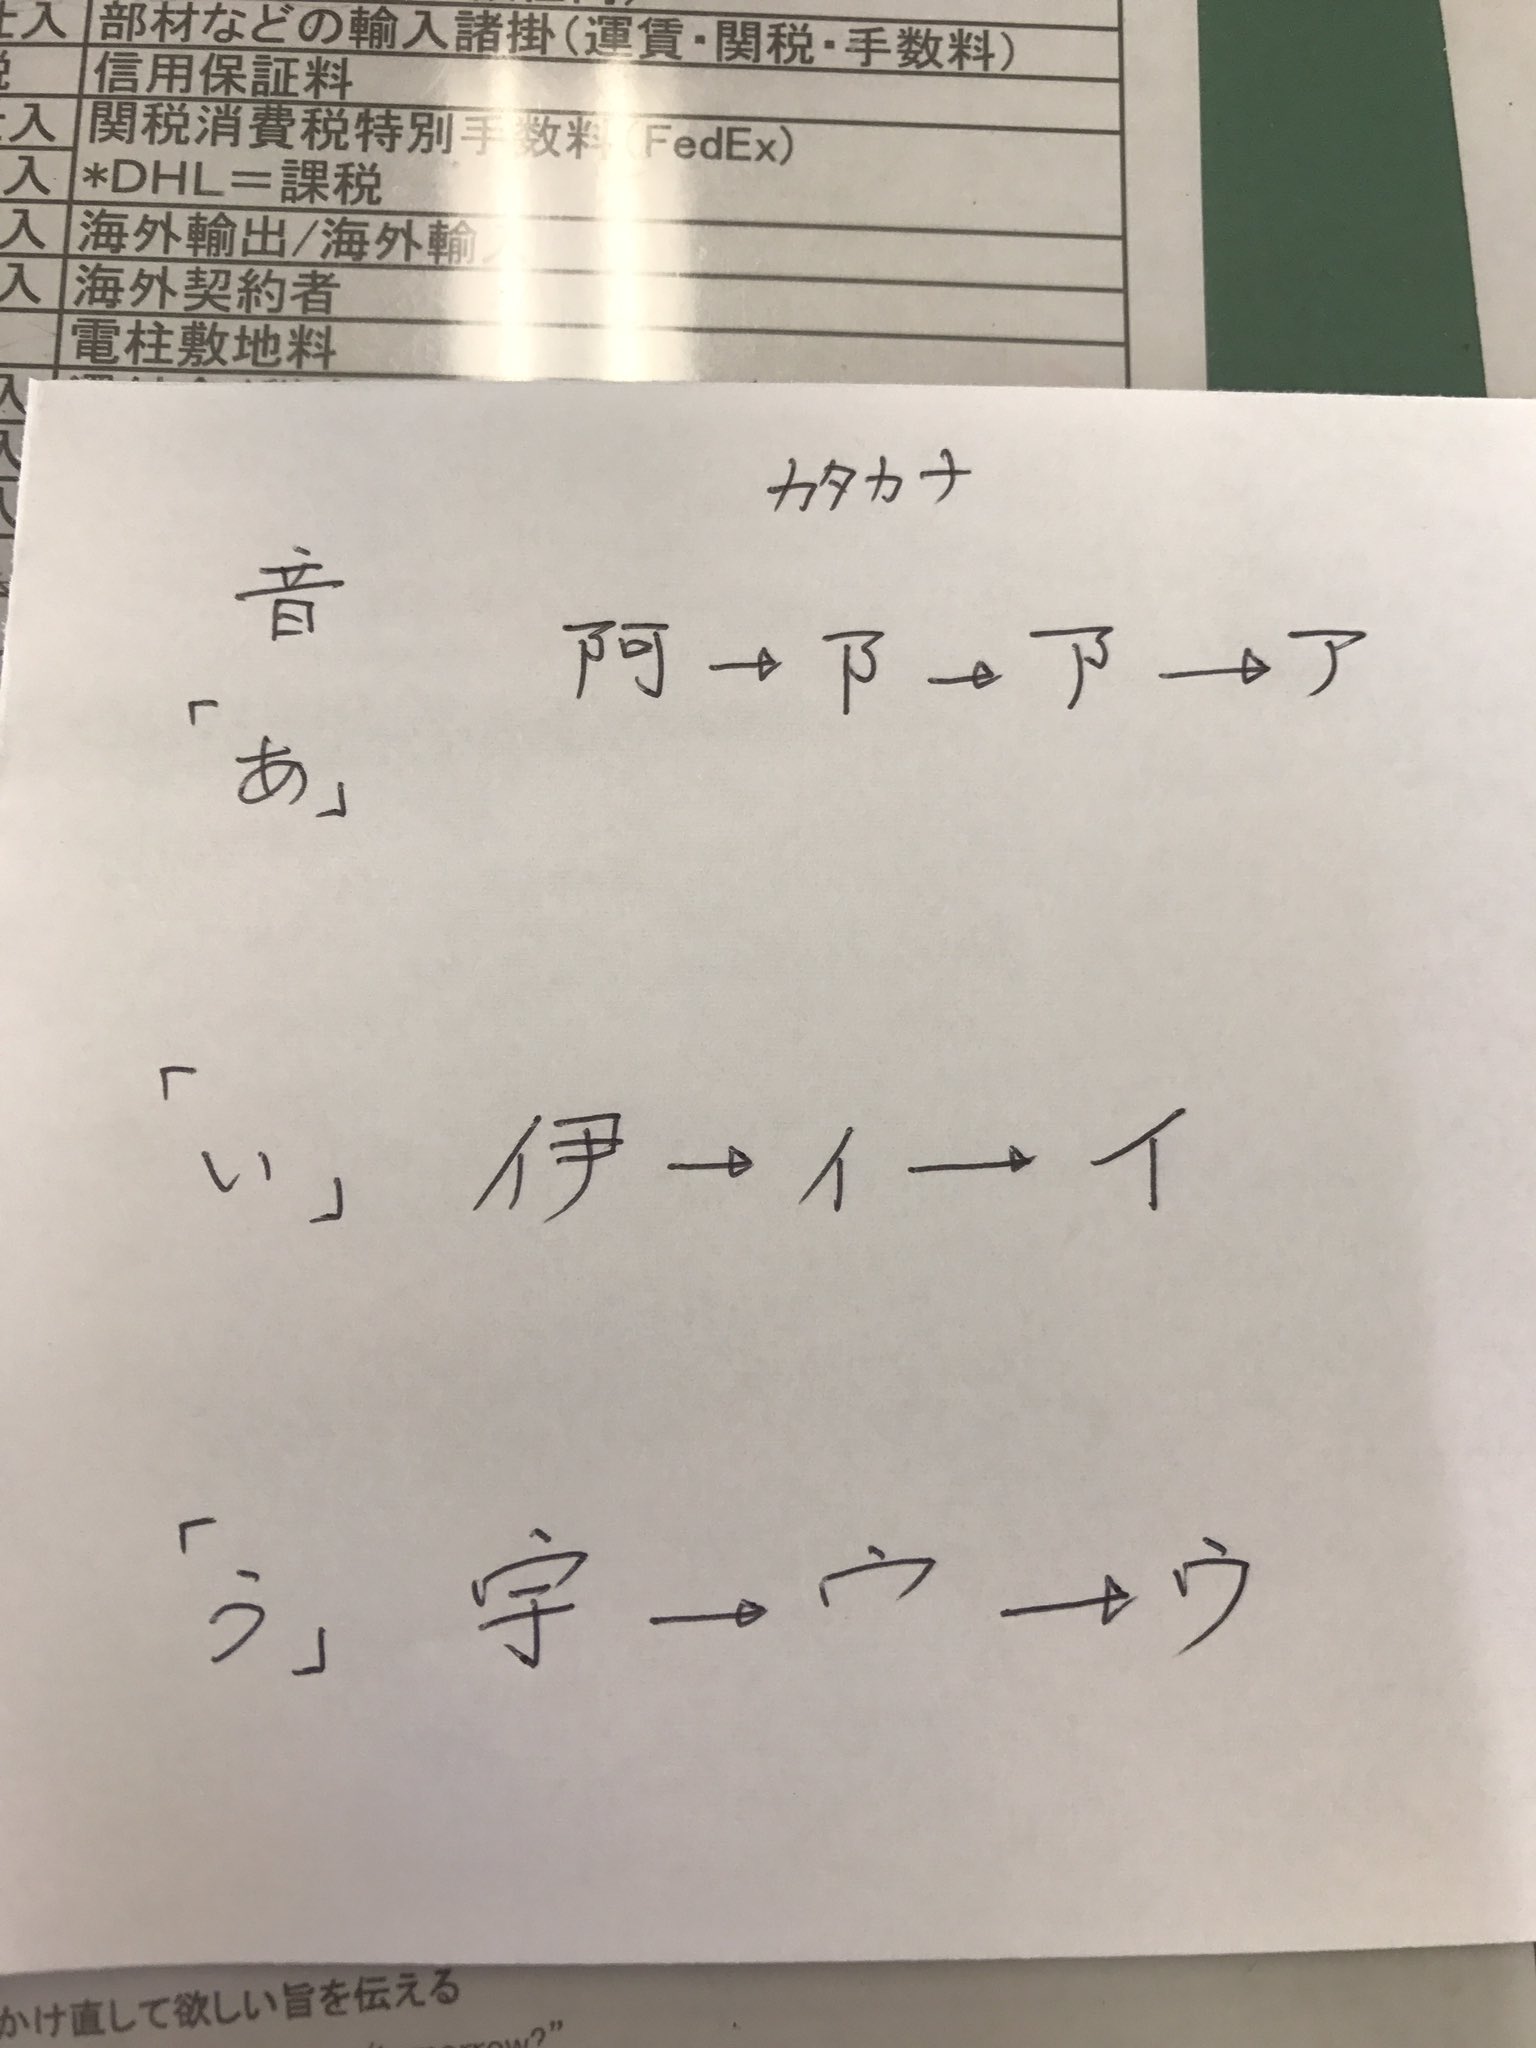 入 部材などの輸入諸掛(運賃・関税・手数料)
信用保証料
入 関税消費税特別手数料(FedEx)
入 *DHL=課税
入 海外輸出/海外輸入
入 海外契約者
電柱敷地料
カタカナ
音
「あ」 阿 → 阝 → 阝 → ア
「い」 伊 → イ → イ
「う」 宇 → 宀 → ウ
かけ直して欲しい旨を伝える